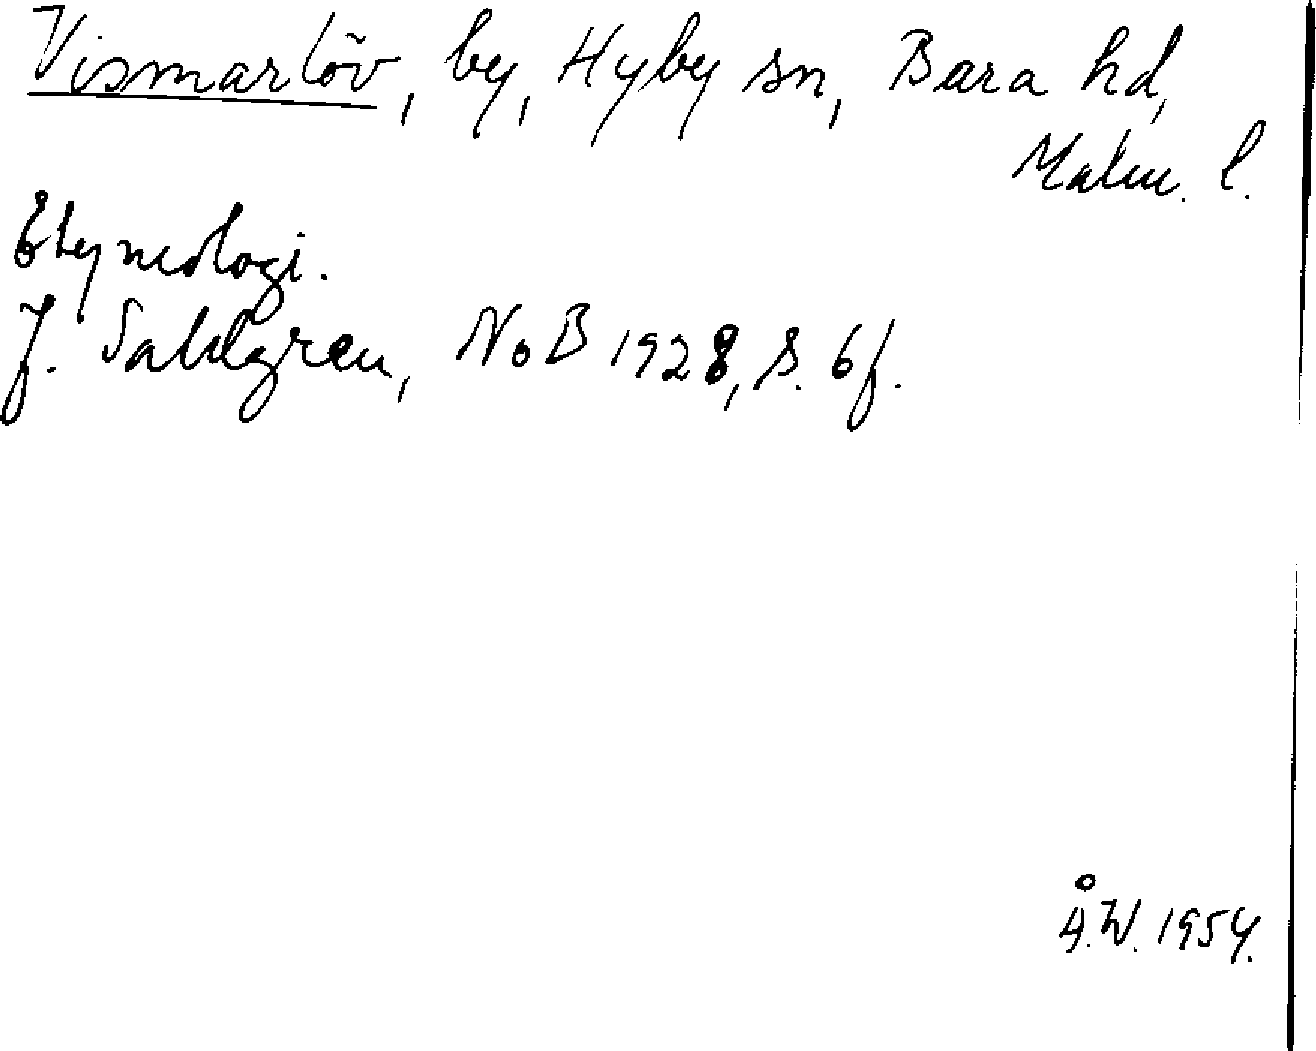 Vismarlöv, by, Hyby sn, Bara hd,
Malm. l.
Etymologi.
J. Sahlgren, NoB 1928, s. 6 f.
Å.W. 1954.